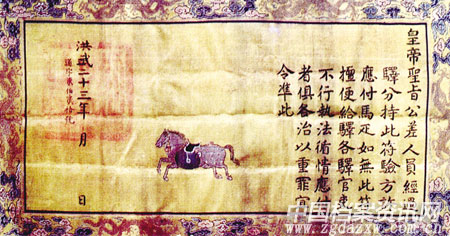 皇帝聖旨公差人員經過
驛分持此符驗方許
應付馬疋如無此符
擅便給驛各驛官吏
不行執法徇情應付
者俱各治以重罪宜
令準此
洪武二十三年 月 日
中国档案资讯网
www.zgdazxw.com.cn